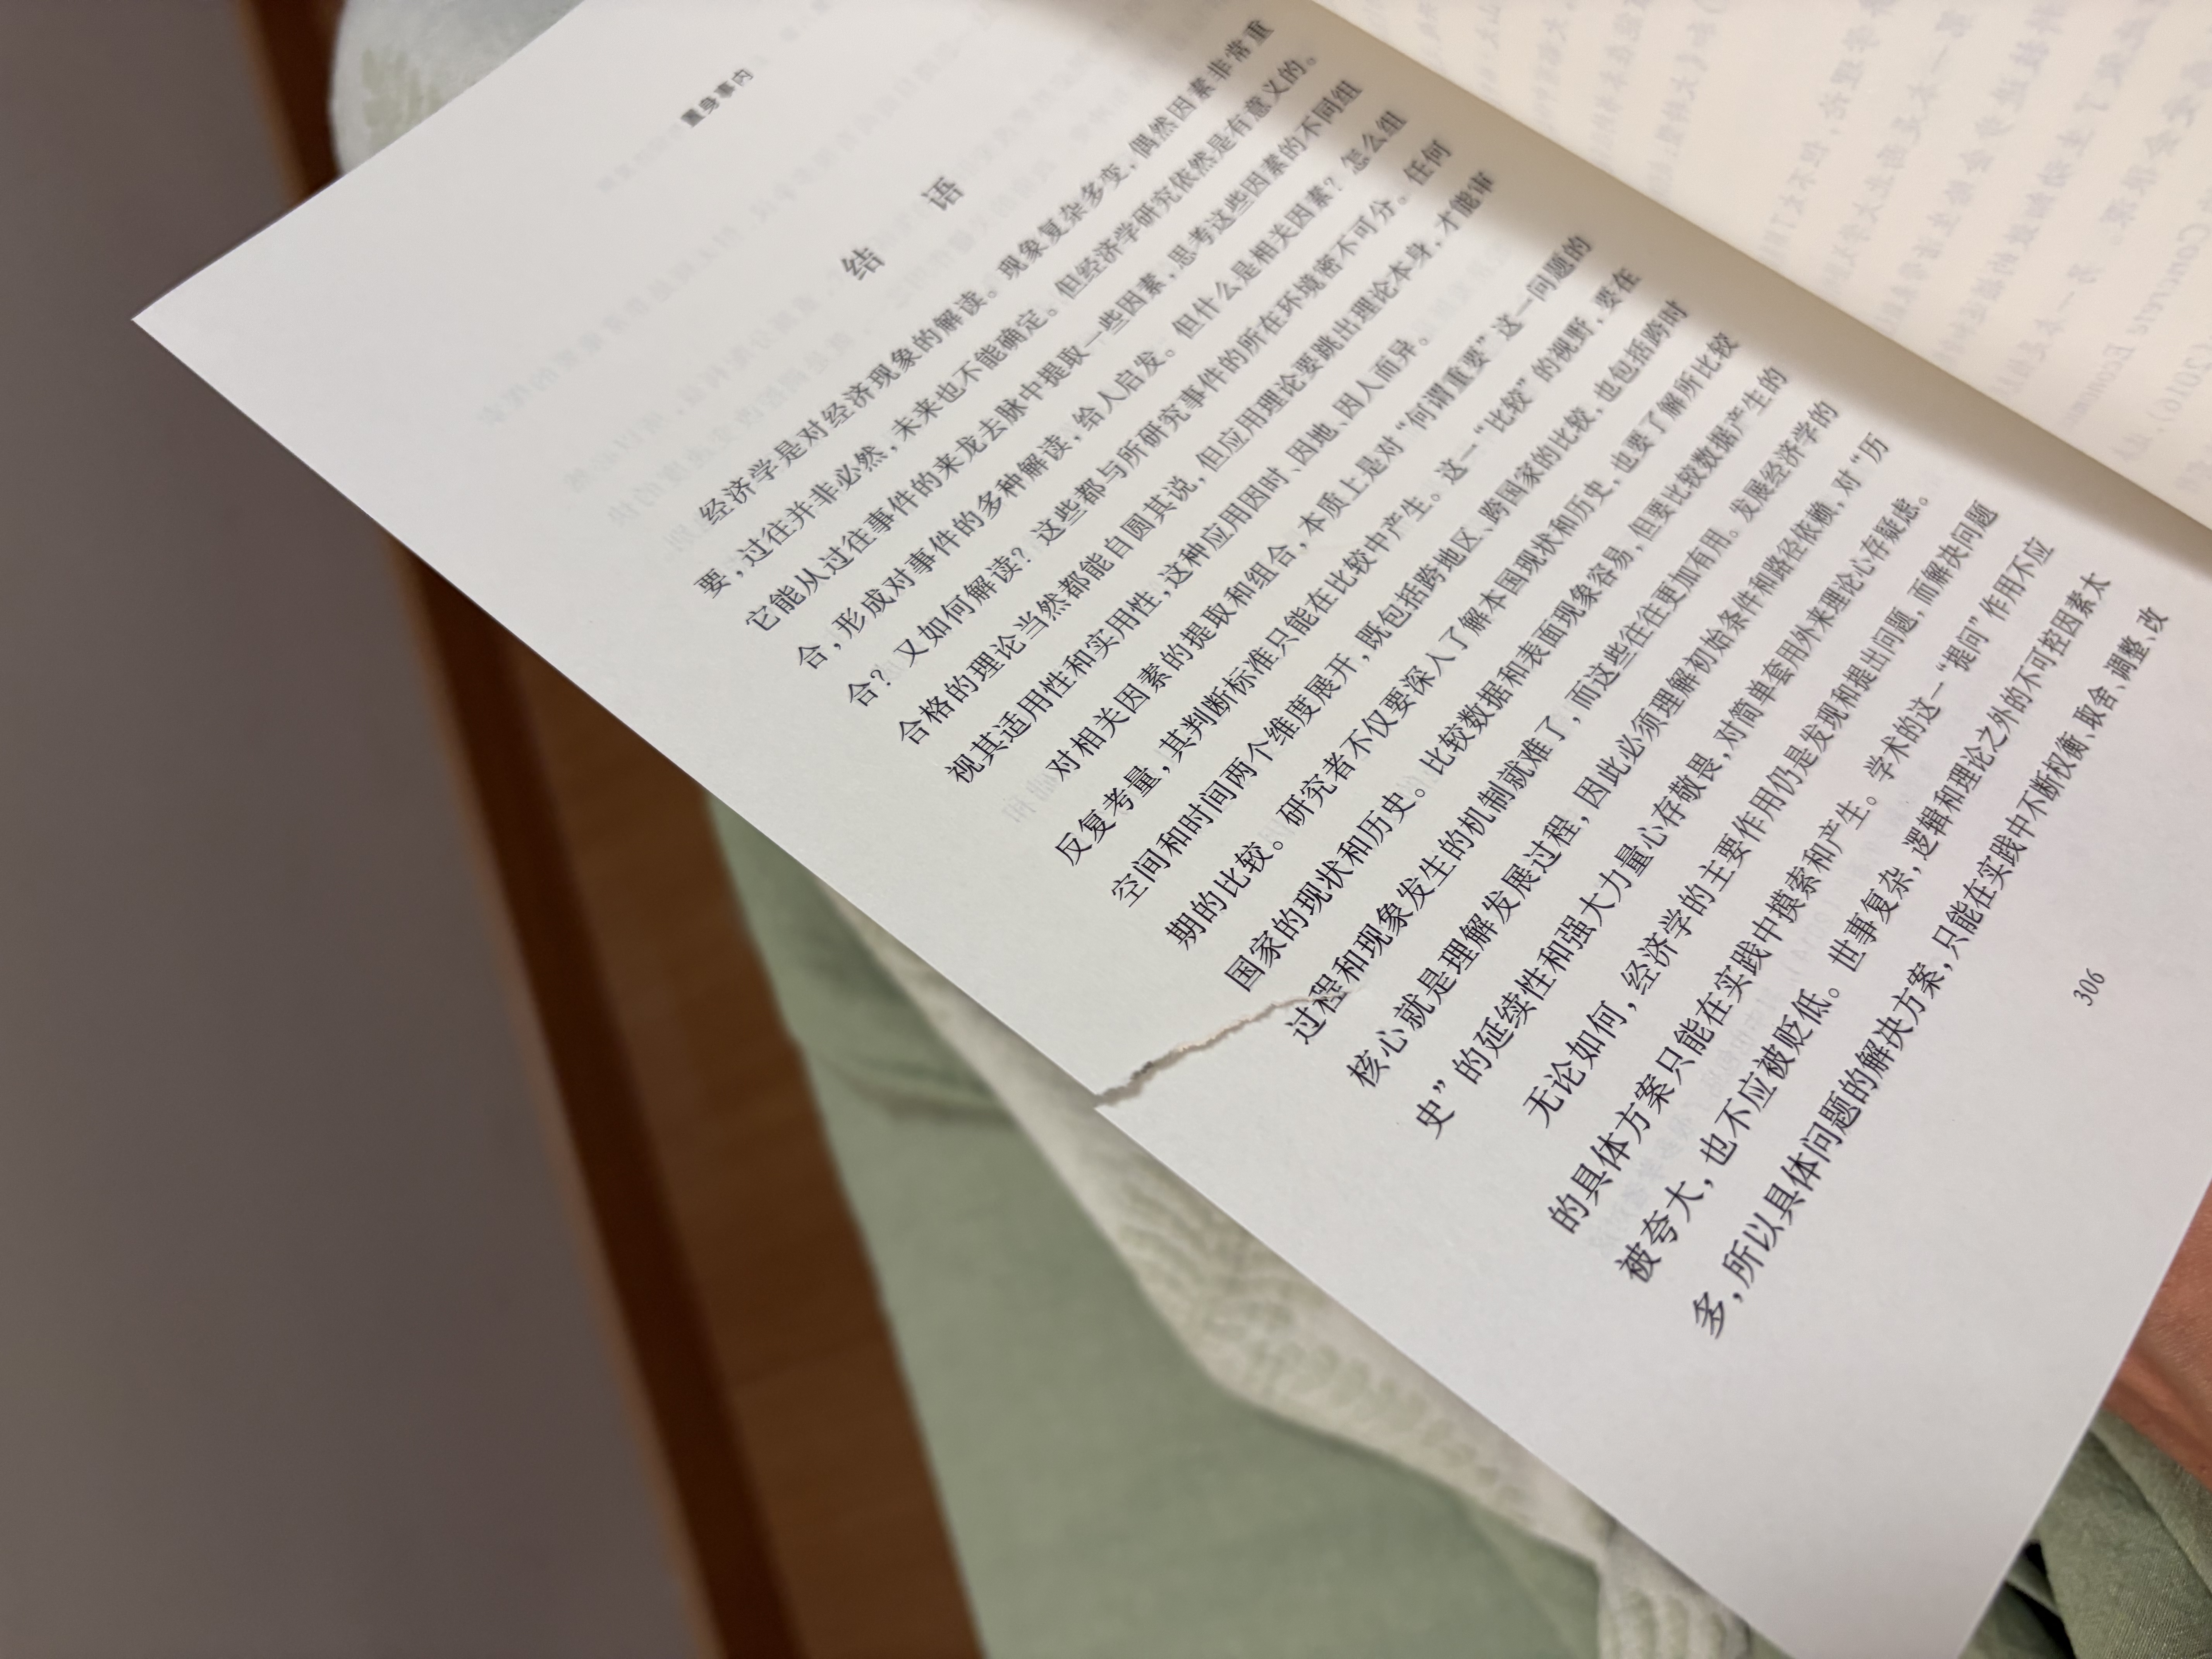 置身事内
结 语
经济学是对经济现象的解读。现象复杂多变，偶然因素非常重
要，过往并非必然，未来也不能确定。但经济学研究依然是有意义的。
它能从过往事件的来龙去脉中提取一些因素，思考这些因素的不同组
合，形成对事件的多种解读，给人启发。但什么是相关因素？怎么组
合？又如何解读？这些都与所研究事件的所在环境密不可分。任何
合格的理论当然都能自圆其说，但应用理论要跳出理论本身，才能审
视其适用性和实用性，这种应用因时、因地、因人而异。
对相关因素的提取和组合，本质上是对“何谓重要”这一问题的
反复考量，其判断标准只能在比较中产生。这一“比较”的视野，要在
空间和时间两个维度展开，既包括跨地区、跨国家的比较，也包括跨时
期的比较。研究者不仅要深入了解本国现状和历史，也要了解所比较
国家的现状和历史。比较数据和表面现象容易，但要比较数据产生的
过程和现象发生的机制就难了，而这些往往更加有用。发展经济学的
核心就是理解发展过程，因此必须理解初始条件和路径依赖，对“历
史”的延续性和强大力量心存敬畏，对简单套用外来理论心存疑虑。
无论如何，经济学的主要作用仍是发现和提出问题，而解决问题
的具体方案只能在实践中摸索和产生。学术的这一“提问”作用不应
被夸大，也不应被贬低。世事复杂，逻辑和理论之外的不可控因素太
多，所以具体问题的解决方案，只能在实践中不断权衡、取舍、调整、改
306